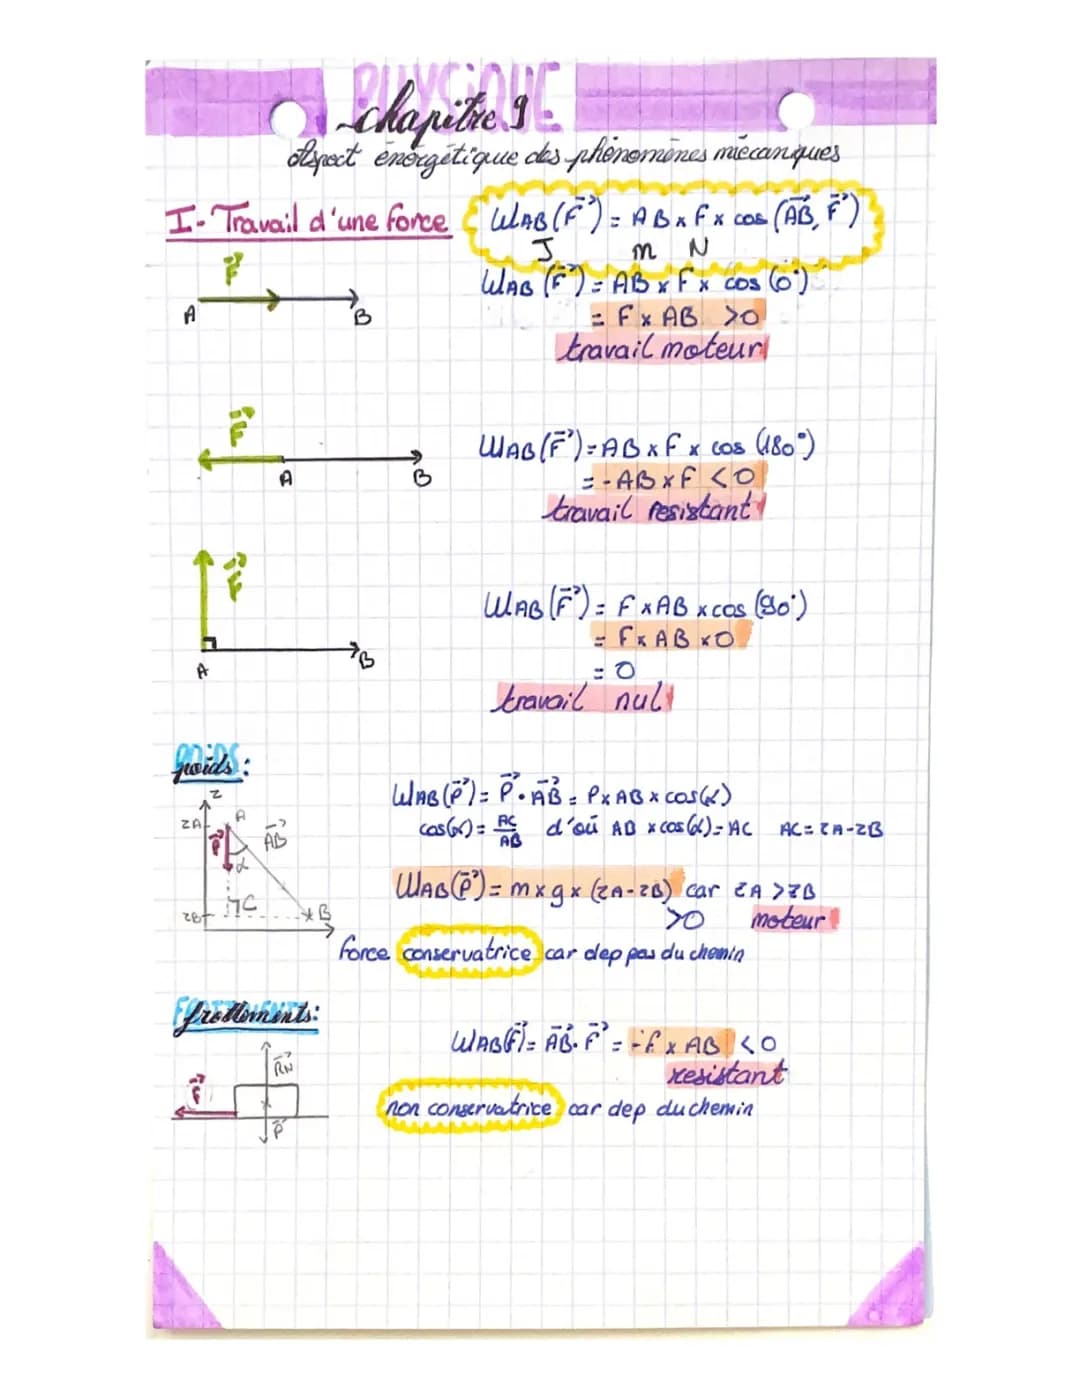 PHYSIQUE
chapitre 9
Aspect énergétique des phénomènes mécaniques
I- Travail d'une force
WAB(F⃗) = AB x F x cos (AB⃗, F⃗)
J m N
F⃗
A B
WAB (F⃗) = AB x F x cos (0°)
= F x AB >0
travail moteur
F⃗
A B
WAB(F⃗) = AB x F x cos (180°)
= - AB x F <0
travail resistant
F⃗
A B
WAB(F⃗) = F x AB x cos (90°)
= F x AB x 0
= 0
travail nul
poids :
z
zA A
P⃗ AB⃗
α
C
zB B
WAB(P⃗) = P⃗ . AB⃗ = P x AB x cos(α)
cos(α) = AC/AB d'où AB x cos(α) = AC AC = zA - zB
WAB(P⃗) = m x g x (zA - zB) car zA > zB
>0 moteur
force conservatrice car dep pas du chemin
FROTTEMENTS
frottements:
R⃗N
f⃗
P⃗
WAB(f⃗) = AB⃗ . F⃗ = -f x AB <0
resistant
non conservatrice car dep du chemin